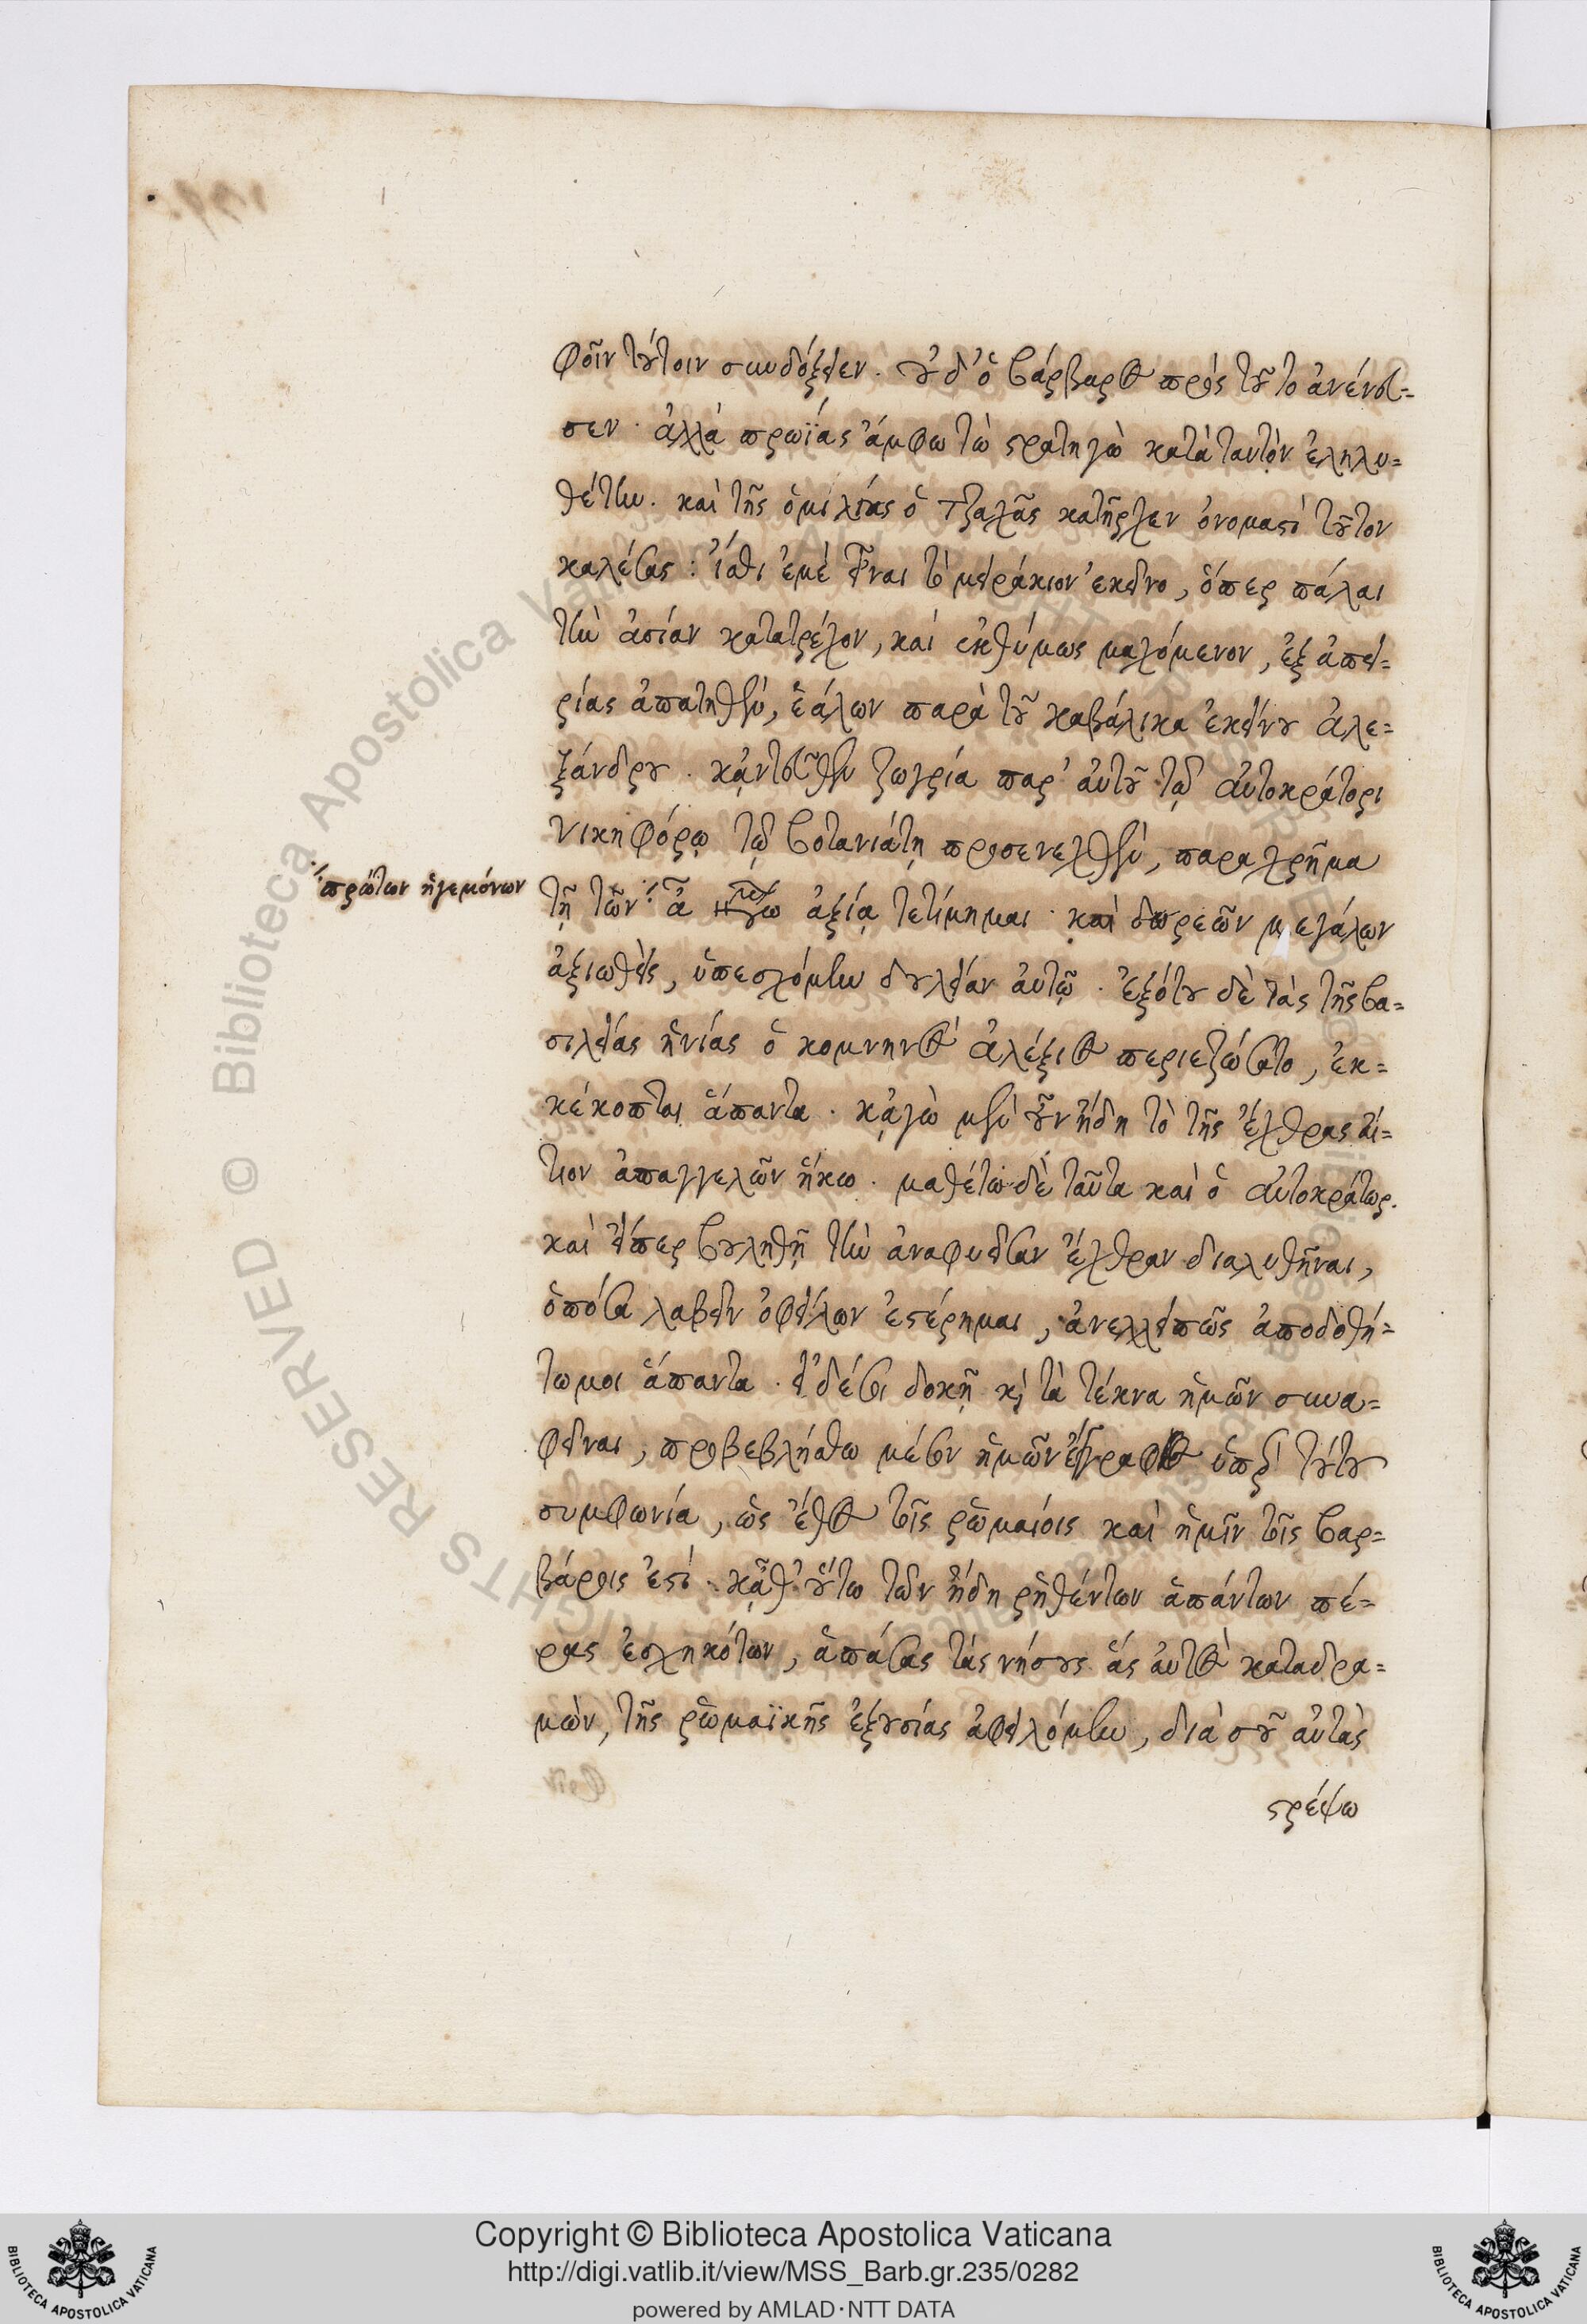 φοῖν τούτοιν συνδόξειεν. οὐδ' ὁ βάρβαρος πρὸς τοῦτο ἀνένευ=
σεν· ἀλλὰ πρωΐας ἄμφω τὼ στρατηγὼ κατὰ ταυτὸν ἐληλυ=
θέτην. καὶ τῆς ὁμιλίας ὁ Τζαχᾶς κατῆρχεν ὀνομαστὶ τοῦτον
καλέσας: ἴσθι ἐμὲ εἶναι τὸ μειράκιον ἐκεῖνο, ὅπερ πάλαι
τὴν ἀσίαν κατατρέχον, καὶ ἐκθύμως μαχόμενον, ἐξ ἀπει=
ρίας ἀπατηθὲν, ἑάλων παρὰ τοῦ καβάλικα ἐκείνου ἀλε=
ξάνδρου. κᾀντεῦθεν ζωγρία παρ' αὐτοῦ τῷ αὐτοκράτορι
Νικηφόρῳ τῷ βοτανιάτῃ προσενεχθὲν, παραχρῆμα
πρώτων ἡγεμόνων
τῇ τῶν ἀξίᾳ τετίμημαι· καὶ δωρεῶν μεγάλων
ἀξιωθεὶς, ὑπεσχόμην δουλείαν αὐτῷ. ἐξότου δὲ τὰς τῆς βα=
σιλείας ἡνίας ὁ κομνηνὸς ἀλέξιος περιεζώσατο, ἐκ=
κέκοπται ἅπαντα. κᾀγὼ μὲν οὖν ἤδη τὸ τῆς ἔχθρας αἴ=
τιον ἀπαγγελῶν ἥκω. μαθέτω δὲ ταῦτα καὶ ὁ αὐτοκράτωρ.
καὶ εἴπερ βουληθῇ τὴν ἀναφυεῖσαν ἔχθραν διαλυθῆναι,
ὁπόσα λαβεῖν ὀφείλων ἐστέρημαι, ἀνελλειπῶς ἀποδοθή=
τωμοι ἅπαντα. εἰ δέ σοι δοκῇ κὶ τὰ τέκνα ἡμῶν συνα=
φεῖναι, προβεβλήσθω μέσον ἡμῶν ἔγγραφος ὑπὲρ τούτου
συμφωνία, ὡς ἔθος τοῖς ῥωμαίοις καὶ ἡμῖν τοῖς βαρ=
βάροις ἐστί. κᾆθ' οὕτω τῶν ἤδη ῥηθέντων ἁπάντων πέ=
ρας ἐσχηκότων, ἁπάσας τὰς νήσους ἃς αὐτὸς καταδρα=
μὼν, τῆς ῥωμαϊκῆς ἐξουσίας ἀφειλόμην, διὰ σοῦ αὐτὰς
στρέψω
Copyright © Biblioteca Apostolica Vaticana
http://digi.vatlib.it/view/MSS_Barb.gr.235/0282
powered by AMLAD·NTT DATA